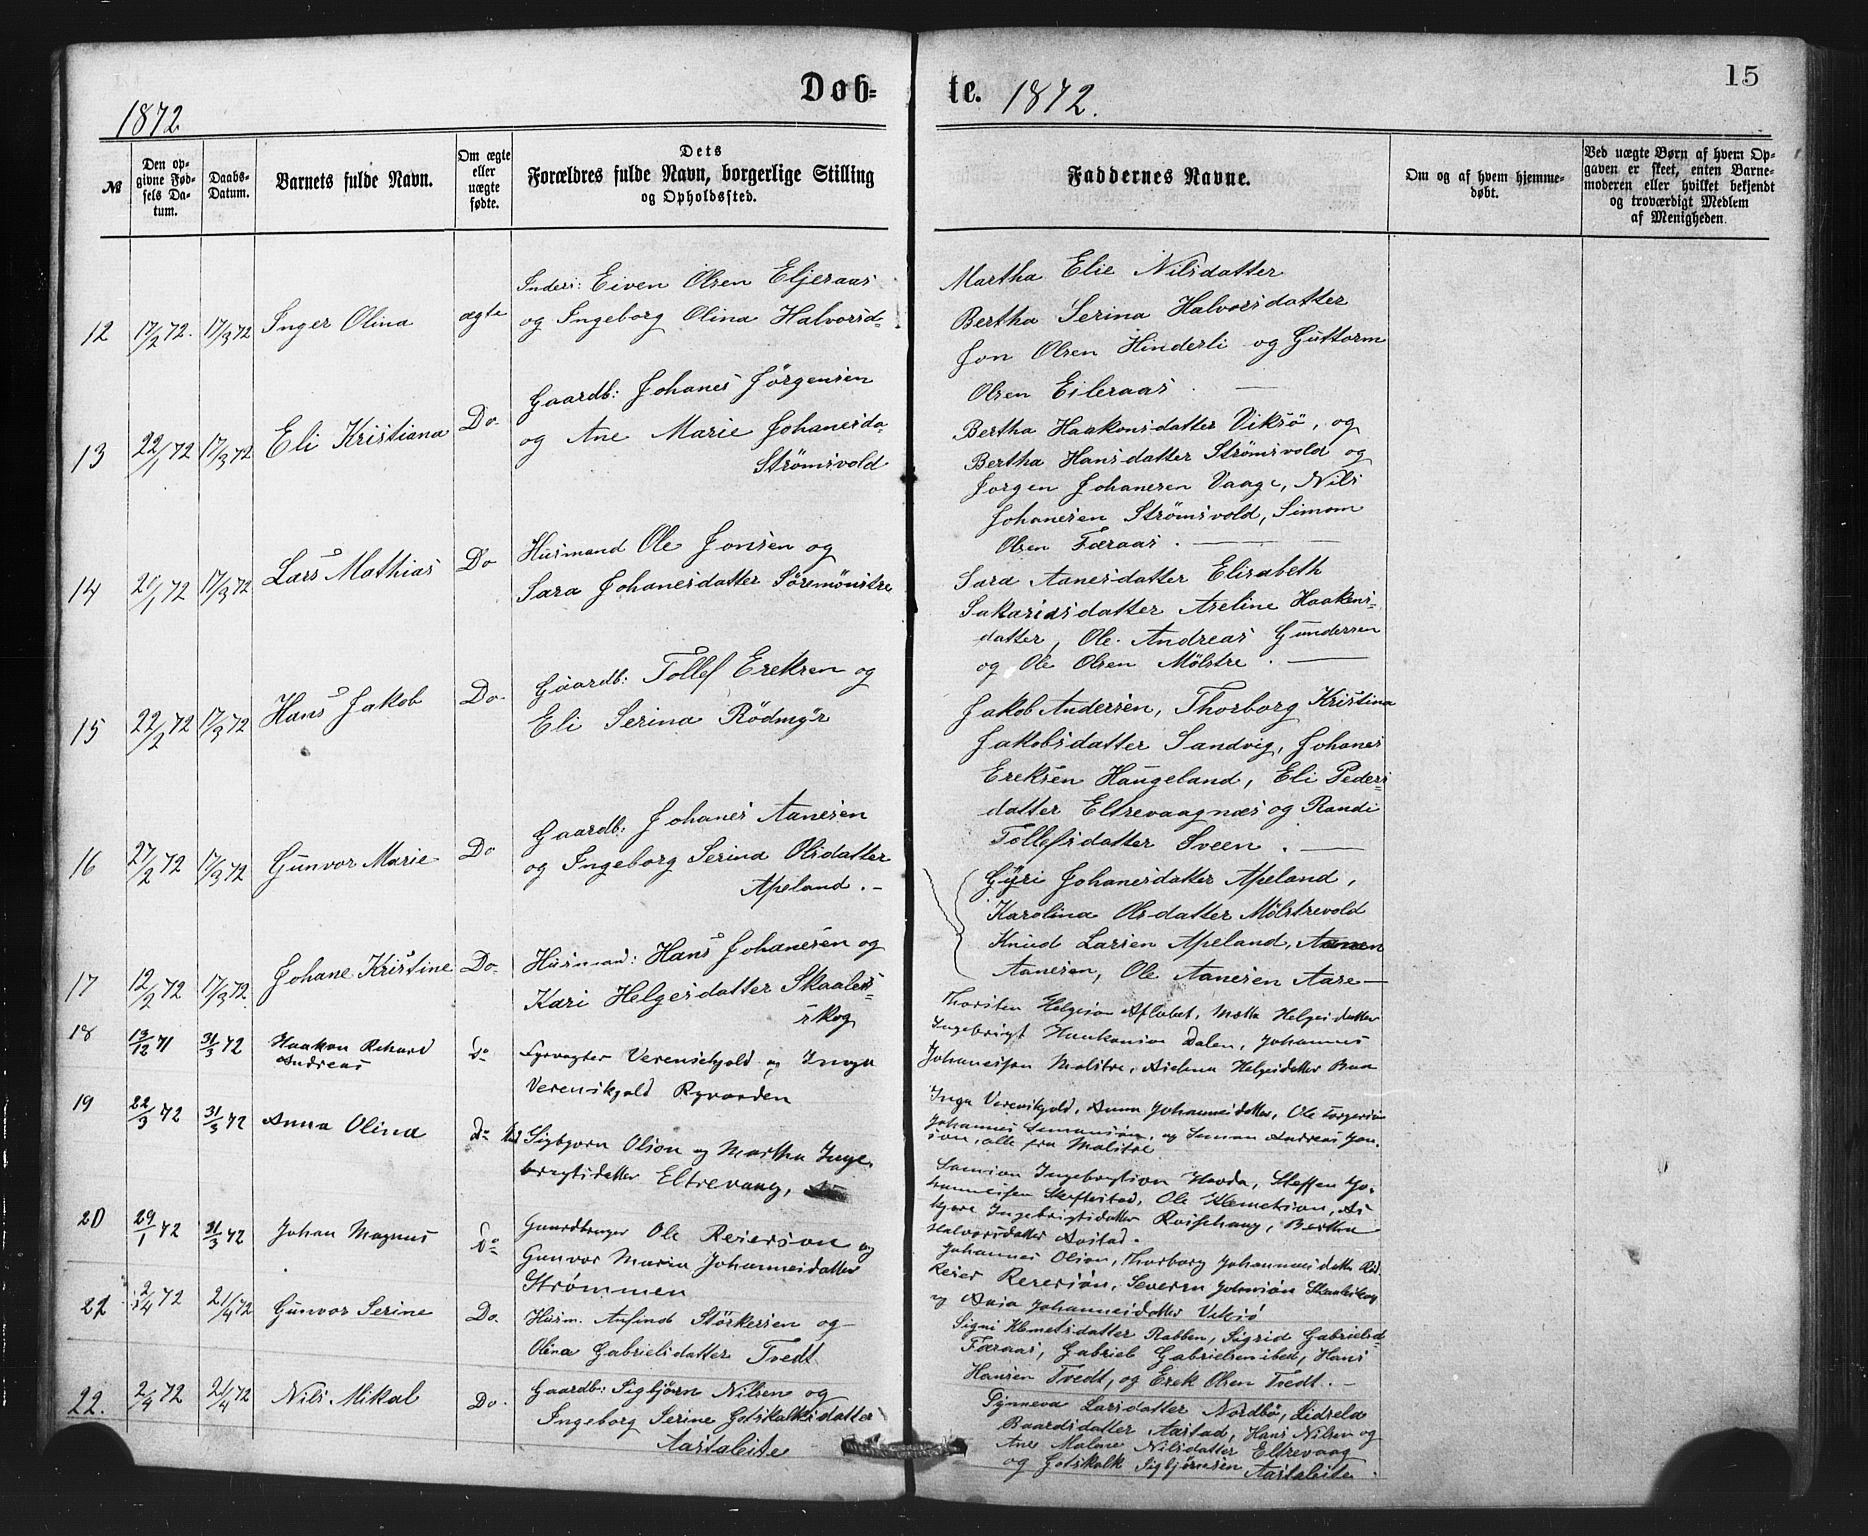 Døb-
1872
№
Den op-
givne Fød-
sels Da-
tum.
Daabs-
Datum.
Barnets fulde Navn.
Om ægte
eller
uægte
fødte.
Dets
Forældres fulde Navn, borgerlige Stilling
og Opholdssted.
12 17/2 72. 17/3 72 Inger Olina ægte
Inders: Eiven Olsen Eljeraas
og Ingeborg Olina Halvorsd-
13 22/1 72 17/3 72 Eli Kristiana Do.
Gaardb: Johanes Jørgensen
og Ane Marie Johanesda-
Strømsvold
14 21/1 72 17/3 72 Lars Mathias Do
Husmand Ole Jonsen og
Sara Johanesdatter Søremönstre
15 22/2 72 17/3 72 Hans Jakob Do.
Gaardb: Tollef Ereksen og
Eli Serina Rödmyr
16 27/2 72 17/3 72 Gunvor Marie Do
Gaardb: Johanes Aanesen
og Ingeborg Serina Olsdatter
Apeland. -
17 12/2 72 17/3 72 Johane Kristine Do.
Husmand: Hans Johanesen og
Kari Helgesdatter Skaalev-
skog
18 13/12 71 31/3 72 Haakon Rehard
Andreas Do
Fyrvogter Verenskjold og Inga
Verenskjold Ryvarden
19 22/3 72 31/3 72 Anna Olina Do
Sigbjorn Olson og Martha Inge-
brigtsdatter Eltrevaag,
20 29/1 72 31/3 72 Johan Magnus Do
Gaardbruger Ole Reierson og
Gunvor Maria Johannesdatter
Strømmen
21 2/4 72 21/4 72 Gunvor Serine Do.
Husm. Anfind Störkersen og
Olina Gabrielsdatter Tvedt
22. 2/4 72 21/4 72 Nils Mikal Do.
Gaardb: Sigbjørn Nilsen og
Ingeborg Serine Gotskalksdatter
Aastaleite
te. 1872.
15
Faddernes Navne.
Om og af hvem hjemme-
døbt.
Ved uægte Børn af hvem Op-
gaven er skeet, enten Barne-
moderen eller hvilket bekjendt
og troværdigt Medlem
af Menigheden.
Martha Elie Nilsdatter
Bertha Serina Halvorsdatter
Jon Olsen Hinderli og Guttorm
Olsen Eileraas.
Bertha Haakonsdatter Viksø, og
Bertha Hansdatter Strømsvold og
Jorgen Johanesen Vaage, Nils
Johanesen Strømsvold, Simom
Olsen Færaas.
Sara Aanesdatter Elisabeth
Sakariasdatter Aseline Haakens-
datter, Ole Andreas Gundersen
og Ole Olsen Mølstre.
Jakob Andersen, Thorborg Kristina
Jakobsdatter Sandvig, Johanes
Ereksen Haugeland, Eli Peders-
datter Eltrevaagnæs og Randi
Tollefsdatter Sveen.
Gyri Johanesdatter Apeland,
Karolina Olsdatter Mølstrevold
Knud Larsen Apeland, Aanen
Aanesen, Ole Aanesen Aase
Thorsten Helgeson Helgesdatter
Ingebrigt Haakonson Dalen, Johannes
Johannesson Molstre, Aselena Helgesdatter
Inga Verenskjold, Anna Johannesdatter, Ole
Johannes og Andreas
alle fra Molstre
Samson Ingebrigtson Hovda, Steffen Jo-
hannessen Ole Klemetson,
Ingebrigtsdatter Bertha
Halvorsdatter Aastad.
Johannes Olson, Thorborg Johannesdatter
Reier Reierson, Severin
og Johannesdatter Viksø
Signi Klemetsdatter Rabben, Sigrid Gabrielsd
Færaas, Gabriel Gabrielsen ibed, Hans
Hansen Tvedt, og Erek Olsen Tvedt. -
Synneva Larsdatter Nordbø, Lidsela
Baardsdatter Aastad, Hans Nilsen og
Ane Malene Nilsdatter Eltrevaag
og Gotskalk Sigbjørnsen Aastaleite.